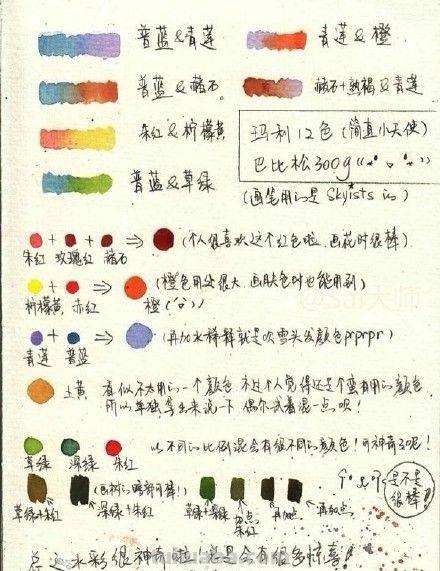 普蓝&青莲
青莲&橙
普蓝&赭石
赭石+熟褐&青莲
朱红&柠檬黄
玛利12色(简直小天使)
巴比松300g
普蓝&草绿
(画笔用的是Skylists的)
朱红 玫瑰红 赭石
(个人很喜欢这个红色啦.画花时很棒)
柠檬黄 赤红
橙
(橙色用处很大.画肤色时也能用到)
青莲 普蓝
(再加水稀释就是吹雪头发颜色prprpr)
土黄
看似不太用的一个颜色 不过个人觉得还是个蛮有用的颜色
所以单独拿出来说一下 偶尔试着混一点呗!
草绿 深绿 朱红
以不同的比例混会有很不同的颜色!可神奇了呢!
草绿+朱红
(画树的暗部可棒!)
深绿+朱红
草绿+深绿
加点朱红
再加点
再加点
是不是很棒!
总之水彩很神奇啦 总是会有很多惊喜!
@Sai大师